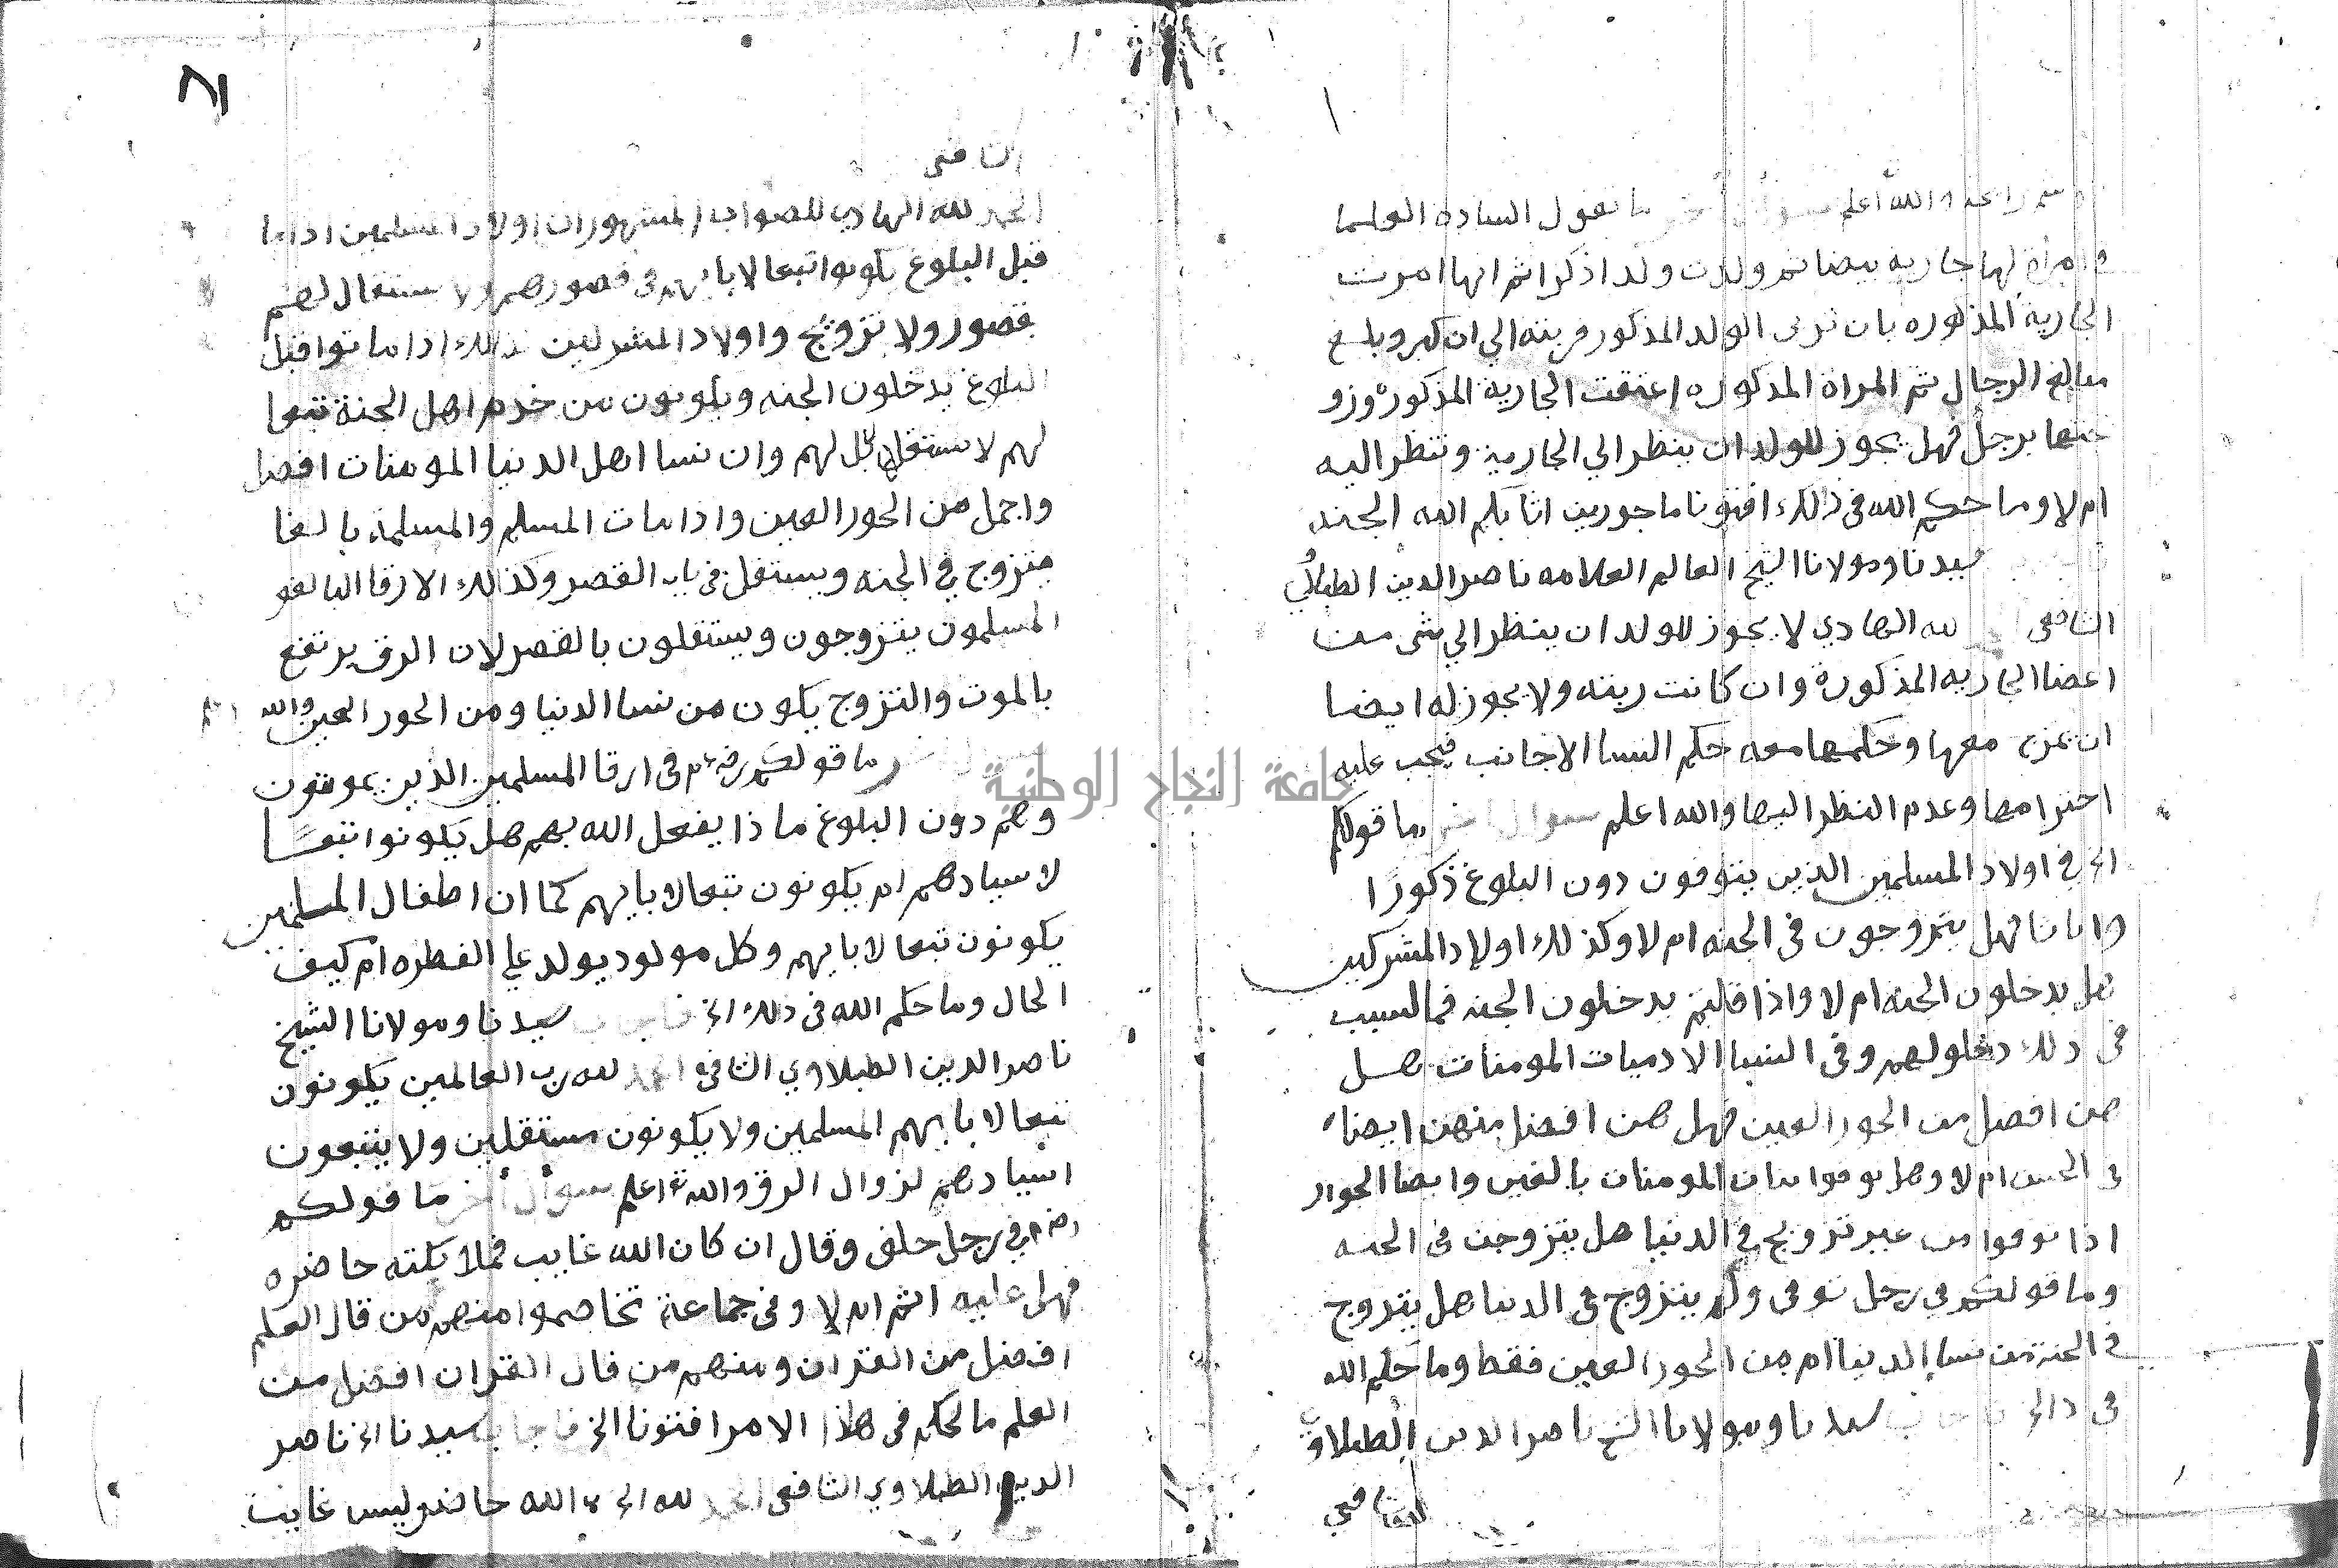 والله اعلم سؤال آخر ما يقول الساده العلما
في امراة لها جاريه بيضا ثم ولدت ولدا ذكرا ثم انها امرت
الجارية المذكوره بان تربى الولد المذكور فربته الي ان كبر وبلغ
مبالغ الرجال ثم المراة المذكوره اعتقت الجارية المذكورة وزو
جتها برجل فهل يجوز للولد ان ينظر الي الجارية وتنظر اليه
ام لا وما حكم الله في ذلك افتونا ماجورين اثابكم الله الجنه
سيدنا ومولانا الشيخ العالم العلامه ناصر الدين الطبلاوي
الشافعي الحمد لله الهادي لا يجوز للولد ان ينظر الي شي من
اعضا الجاريه المذكورة وان كانت ربته ولا يجوز له ايضا
ان يمزح معها وحكمها معه حكم النسا الاجانب فيجب عليه
احترامها وعدم النظر اليها والله اعلم سوال اخر ما قولكم
الخ في اولاد المسلمين الذين يتوفون دون البلوغ ذكورًا
واناثا فهل يتزوجون في الجنه ام لا وكذلك اولاد المشركين
هل يدخلون الجنه ام لا واذا قلتم يدخلون الجنه فما السبب
في ذلك دخولهم وفي النسا الادميات المومنات هل
هن افضل من الحور العين فهل هن افضل منهن ايضا
في الحسن ام لا وهل توفوا بنات المومنات بالغين وايضا الجوار
اذا توفوا من غير تزويج في الدنيا هل يتزوجن في الجنه
وما قولكم في رجل توفى ولم يتزوج في الدنيا هل يتزوج
في الجنة من نسا الدنيا ام من الحور العين فقط وما حكم الله
في ذالك فاجاب سيدنا ومولانا الشيخ ناصر الدين الطبلاوي
الشافعي
٨١
الشافعي
الحمد لله الهادي للصواب المشهور ان اولاد المسلمين اذا ما
قبل البلوغ يكونوا تبعا لابايهم في قصورهم ولا استقلال لهم
بقصور ولا تزوج واولاد المشركين كذلك اذا ماتوا قبل
البلوغ يدخلون الجنه ويكونون من خدم اهل الجنة تبعا
لهم لا استقلال لهم وان نسا اهل الدنيا المومنات افضل
واجمل من الحور العين واذا مات المسلم والمسلمة بالغا
يتزوج في الجنه ويستقل في باب القصر وكذالك الارقا البالغو
المسلمون يتزوجون ويستقلون بالقصر لان الرق يرتفع
بالموت والتزوج يكون من نسا الدنيا ومن الحور العين والله اعلم
ما قولكم رضي في ارقا المسلمين الذين يموتون
وهم دون البلوغ ماذا يفعل الله بهم هل يكونوا تبعًا
لاسيادهم ام يكونون تبعا لابايهم كما ان اطفال المسلمين
يكونون تبعا لابايهم وكل مولود يولد علي الفطره ام كيف
الحال وما حكم الله في ذلك الخ فاجاب سيدنا ومولانا الشيخ
ناصر الدين الطبلاوي الشافعي الحمد لله رب العالمين يكونون
تبعا لابايهم المسلمين ولا يكونون مستقلين ولا يتبعون
اسيادهم لزوال الرق والله اعلم سؤال آخر ما قولكم
رضي في رجل حلف وقال ان كان الله غايب فملايكته حاضره
فهل عليه اثم ام لا وفي جماعة تخاصموا منهم من قال العلم
افضل من القران ومنهم من قال القران افضل من
العلم ما الحكم في هذا الامر افتونا الخ فاجاب سيدنا الخ ناصر
الدين الطبلاوي الشافعي الحمد لله الخ الله حاضر وليس غايب
جامعة النجاح الوطنية